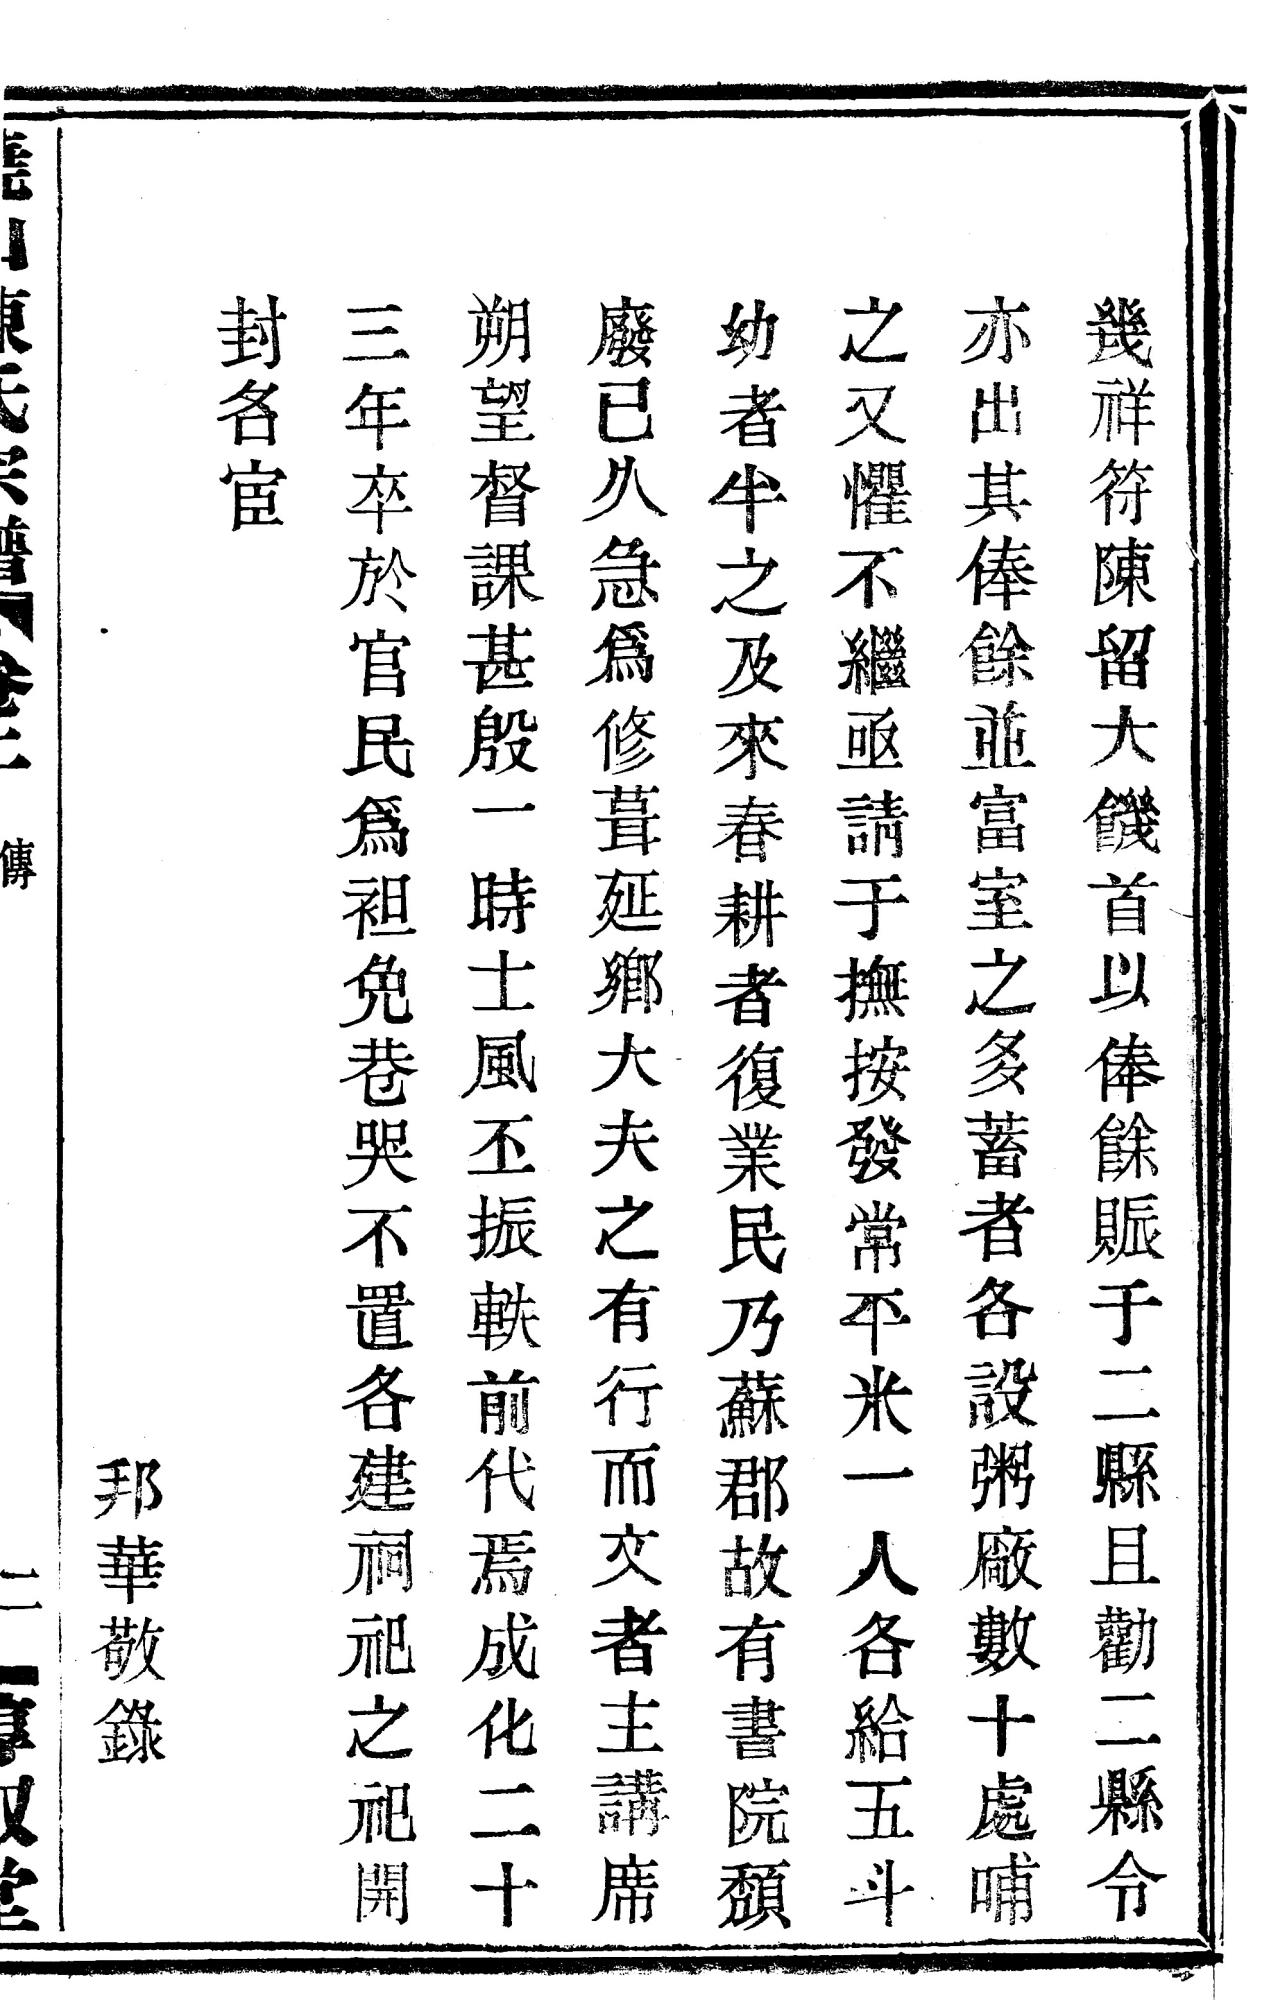 幾祥符陳留大饑首以俸餘賑于二縣且勸二縣令
亦出其俸餘並富室之多蓄者各設粥廠數十處哺
之又懼不繼亟請于撫按發常平米一人各給五斗
幼者半之及來春耕者復業民乃蘇郡故有書院頹
廢已久急爲修葺延鄉大夫之有行而文者主講席
朔望督課甚殷一時士風丕振軼前代焉成化二十
三年卒於官民爲袒免巷哭不置各建祠祀之祀開
封名宦
邦華敬錄
陳氏宗譜 卷上 傳 二 敘堂